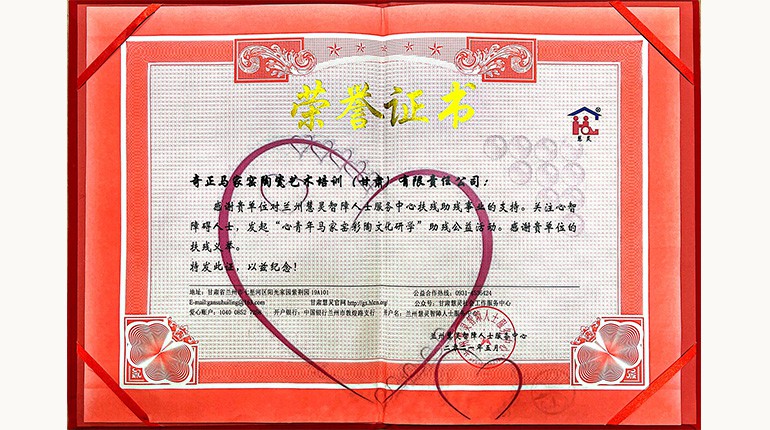 荣誉证书
慧灵
奇正马家窑陶瓷艺术培训（甘肃）有限责任公司：
感谢贵单位对兰州慧灵智障人士服务中心扶残助残事业的支持。关注心智
障碍人士，发起“心青年马家窑彩陶文化研学”助残公益活动。感谢贵单位的
扶残义举。
特发此证，以兹纪念！
地址：甘肃省兰州市七里河区阳光家园紫荆园19A101 公益合作热线：0931-
E-mail:gansuhuiling@163.com 甘肃慧灵官网http://gs.hlcn.org/ 公众号：甘肃慧灵社会工作服务中心
爱心账户：1040 0852 开户银行：中国银行兰州市敦煌路支行 开户名：兰州慧灵智障人士服务中心
兰州慧灵智障人士服务中心
二〇二一年五月